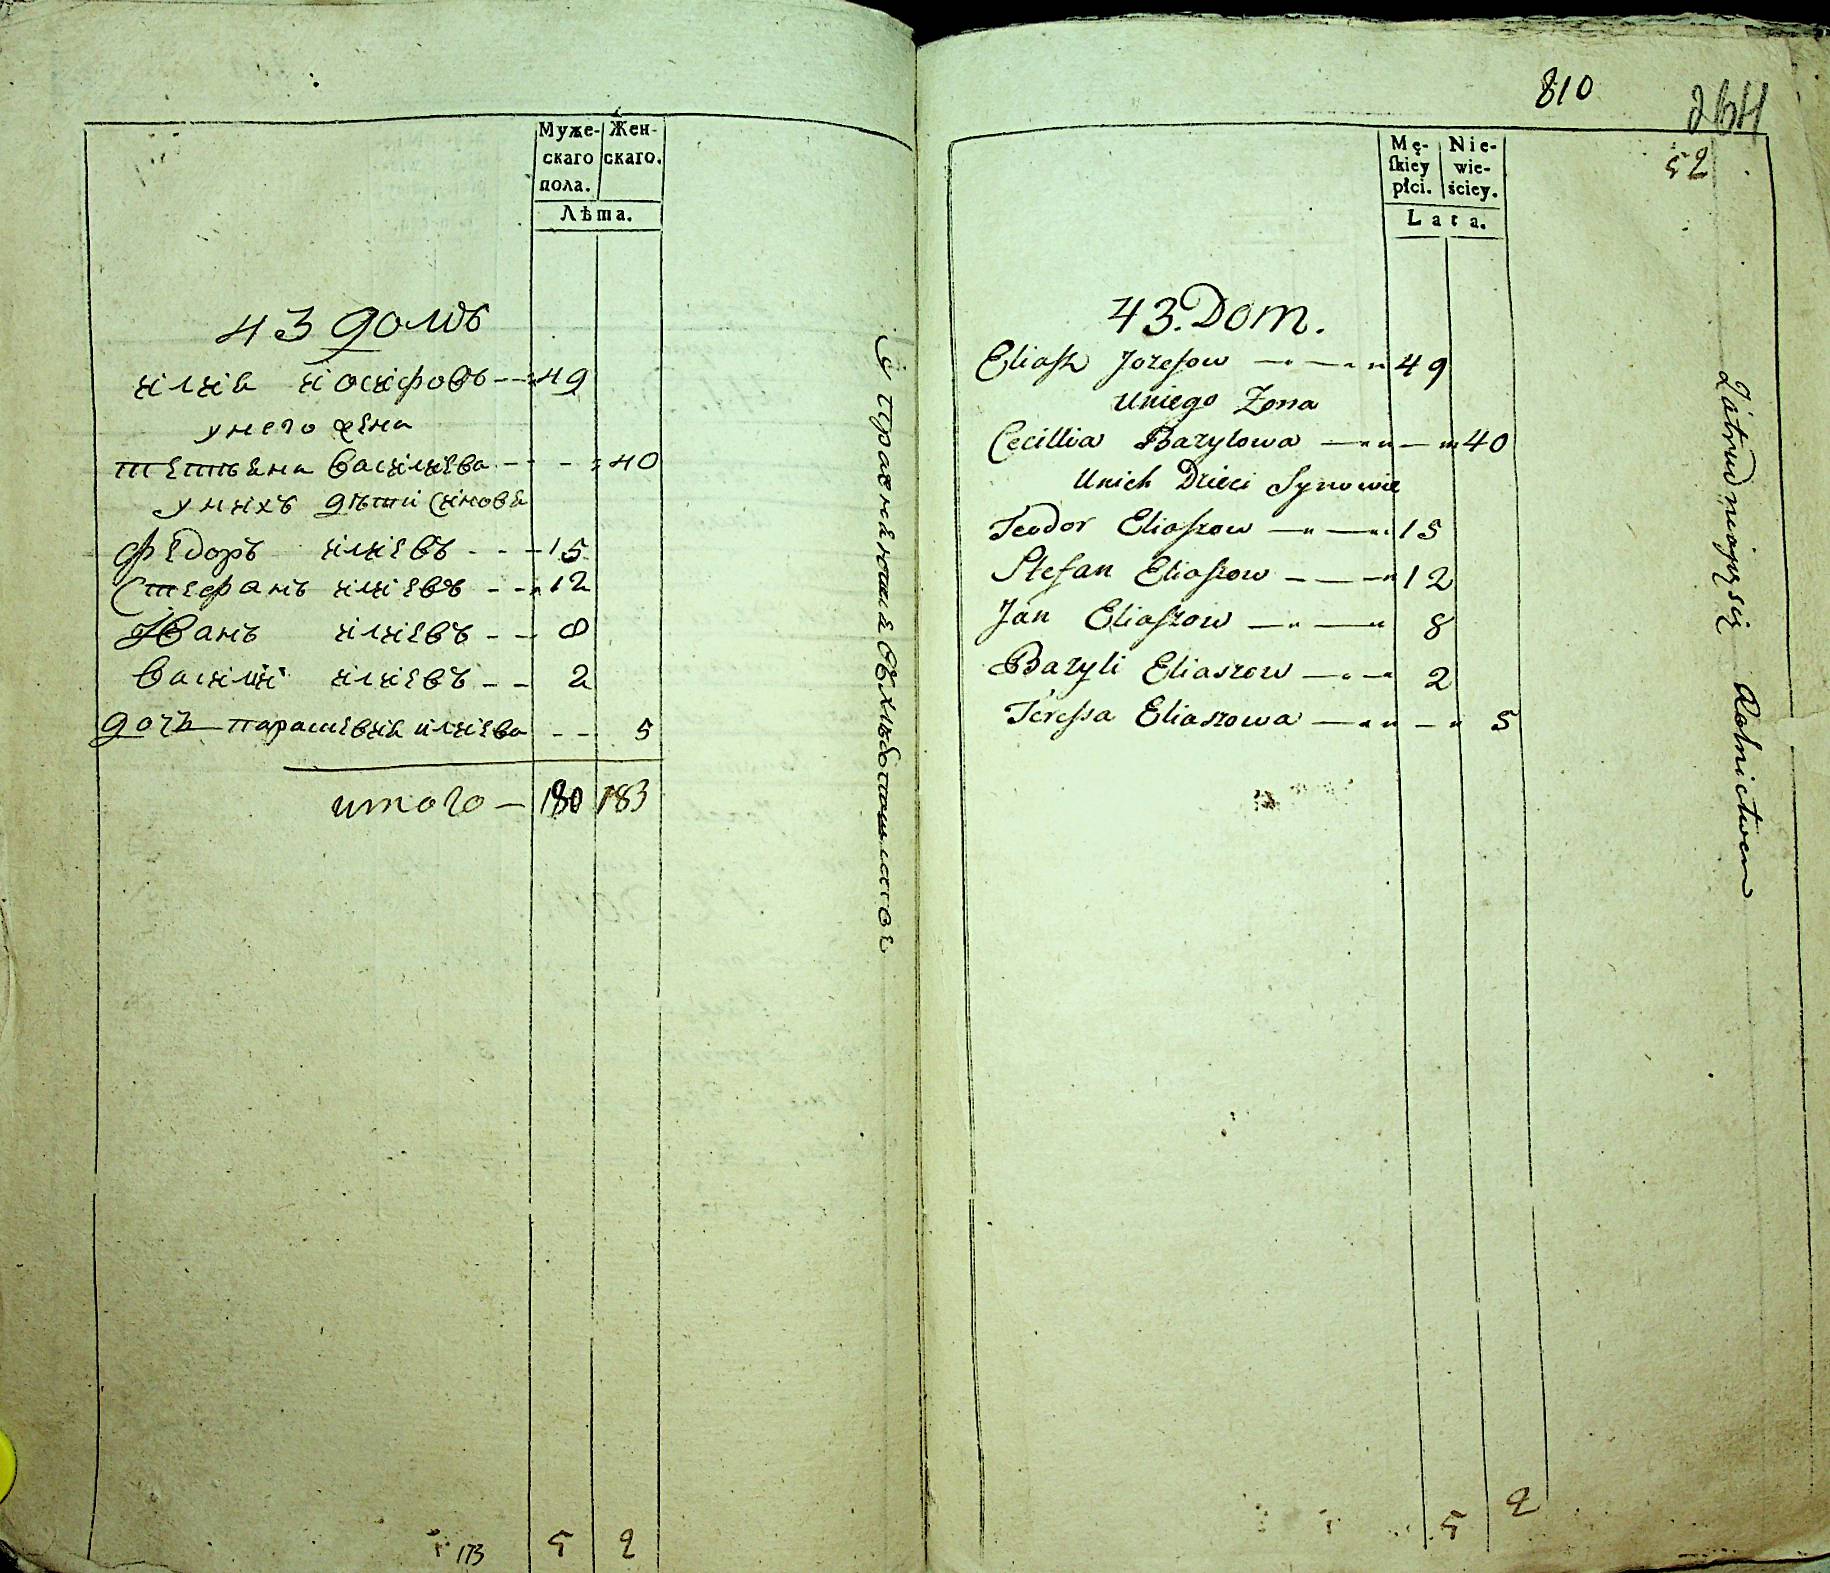 Муже- Жен-
скаго скаго.
пола.
Лѣта.
43 домъ
илия иосифовъ - - 49
у него жена
тетьяна василиева - - - 40
у нихъ дѣти синовя
федоръ илиевъ - - - 15
стефанъ илиевъ - - - 12
Иванъ илиевъ - - 8
василий илиевъ - - 2
дочь парасцевия илиева - - 5
итого — 180 183
173 5 2
810
264
52
Mę- Nie-
ſkiey wie-
płci. ściey.
Lata.
43. Dom.
Eliaſz Jozefow — — 49
Uniego Zona
Cecillia Bazylowa — — 40
Unich Dzieci Synowie
Teodor Eliaſzow — — 15
Stefan Eliaſzow — — 12
Jan Eliaſzow — — 8
Bazyli Eliaszow — — 2
Tereſsa Eliaszowa — — 5
Zatrudniaiący się Rolnictwem
5 2